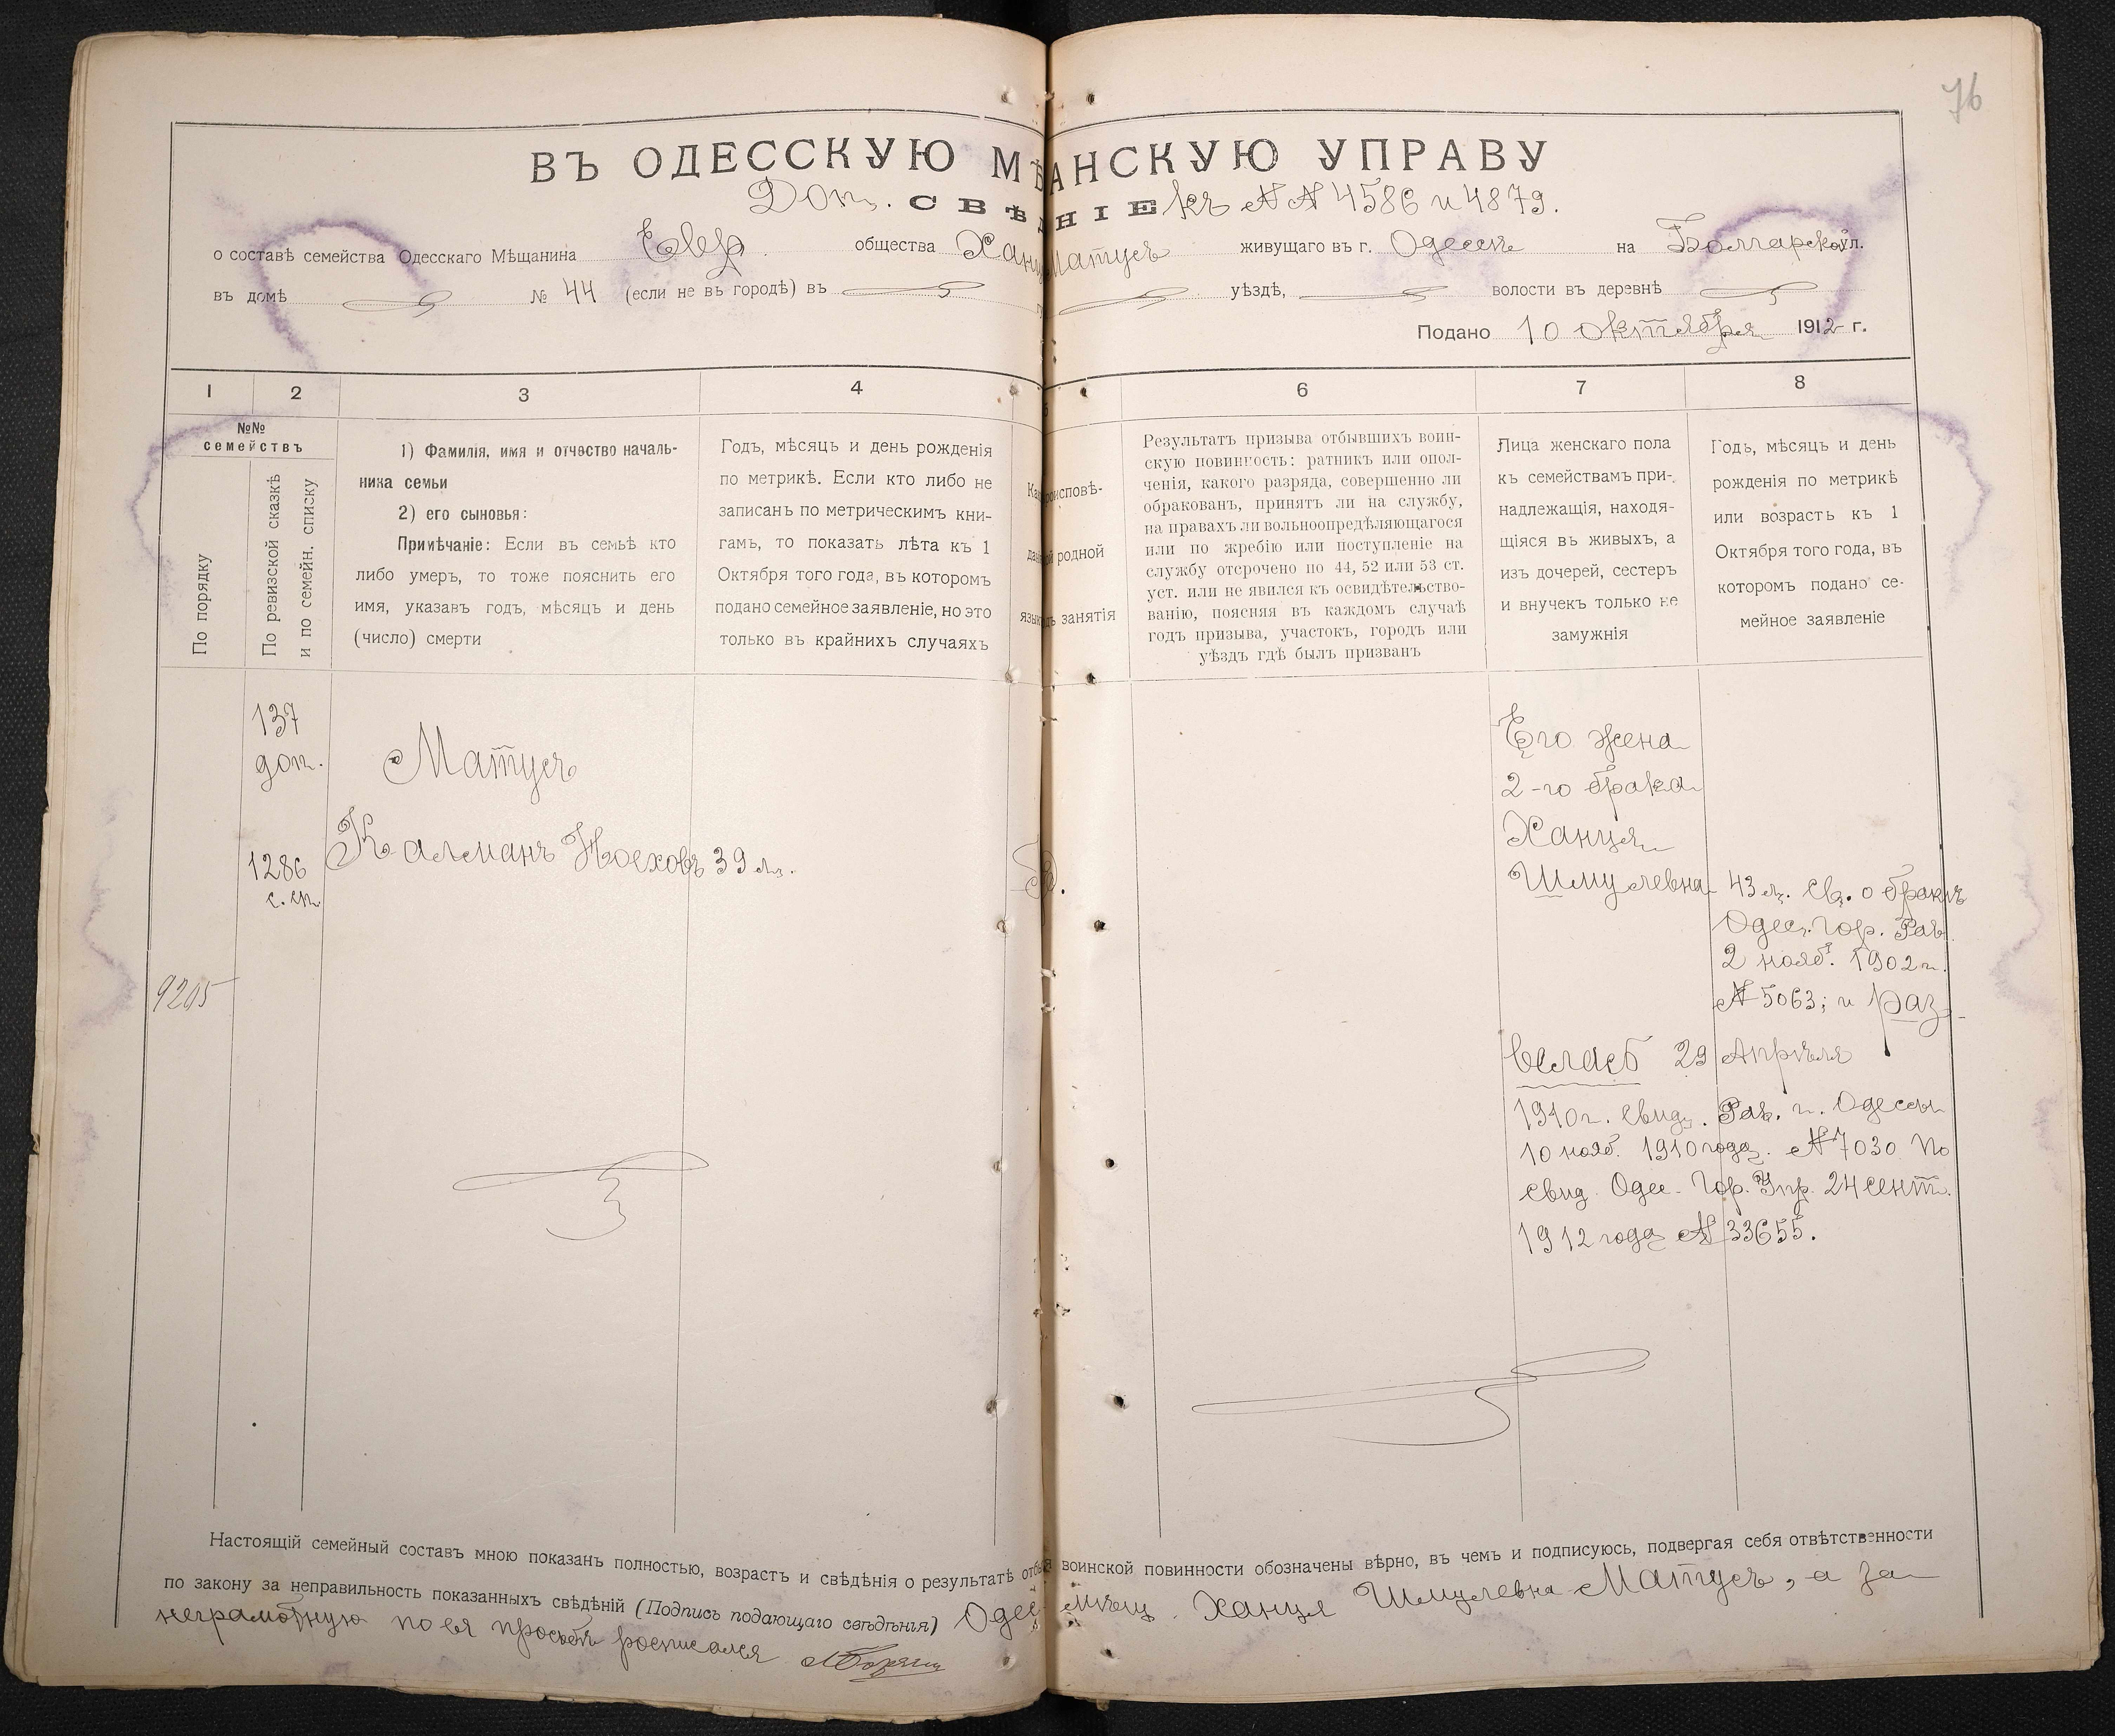 76
ВЪ ОДЕССКУЮ МѢ АНСКУЮ УПРАВУ
Доп. СВѢДѢНІЕ къ №№ 4586 и 4879.
о составѣ семейства Одесскаго Мѣщанина Евр. общества Ханц Матусъ живущаго въ г. Одессѣ на Болгарской ул.
въ домѣ № 44 (если не въ городѣ) въ уѣздѣ, волости въ деревнѣ
Подано 10 октября 1912 г.
1 2 3 4 5 6 7 8
№№
семействъ
По порядку
По ревизской сказкѣ
и по семейн. списку
1) Фамилія, имя и отчество началь-
ника семьи
2) его сыновья:
Примѣчаніе: Если въ семьѣ кто
либо умеръ, то тоже пояснить его
имя, указавъ годъ, мѣсяцъ и день
(число) смерти
Годъ, мѣсяцъ и день рожденія
по метрикѣ. Если кто либо не
записанъ по метрическимъ кни-
гамъ, то показать лѣта къ 1
Октября того года, въ которомъ
подано семейное заявленіе, но это
только въ крайнихъ случаяхъ
роисповѣ-
родной
занятія
Результатъ призыва отбывшихъ воин-
скую повинность: ратникъ или опол-
ченія, какого разряда, совершенно ли
обракованъ, принятъ ли на службу,
на правахъ ли вольноопредѣляющагося
или по жребію или поступленіе на
службу отсрочено по 44, 52 или 53 ст.
уст. или не явился къ освидѣтельство-
ванію, поясняя въ каждомъ случаѣ
годъ призыва, участокъ, городъ или
уѣздъ гдѣ былъ призванъ
Лица женскаго пола
къ семействамъ при-
надлежащія, находя-
щіяся въ живыхъ, а
изъ дочерей, сестеръ
и внучекъ только не
замужнія
Годъ, мѣсяцъ и день
рожденія по метрикѣ
или возрастъ къ 1
Октября того года, въ
которомъ подано се-
мейное заявленіе
137
доп.
1286
с. сп.
9205
Матусъ
Калманъ Ноеховъ 39 л.
Его жена
2-го брака
Ханця
Шмулевна 43 л. Св. о бракѣ
Одес. Гор. Рав.
2 нояб. 1902 г.
№ 5063; и раз-
велась 29 Апрѣля
1910 г. Свид. Рав. г. Одессы
10 нояб. 1910 года. № 7030 По
свид. Одес. Гор. Упр. 24 сент.
1912 года № 33655.
Настоящій семейный составъ мною показанъ полностью, возрастъ и свѣдѣнія о результатѣ отбы воинской повинности обозначены вѣрно, въ чемъ и подписуюсь, подвергая себя отвѣтственности
по закону за неправильность показанныхъ свѣдѣній (Подпись подающаго свѣдѣнія) Одес. мѣщ. Ханця Шмулевна Матусъ, а за
неграмотную по ея просьбѣ росписался